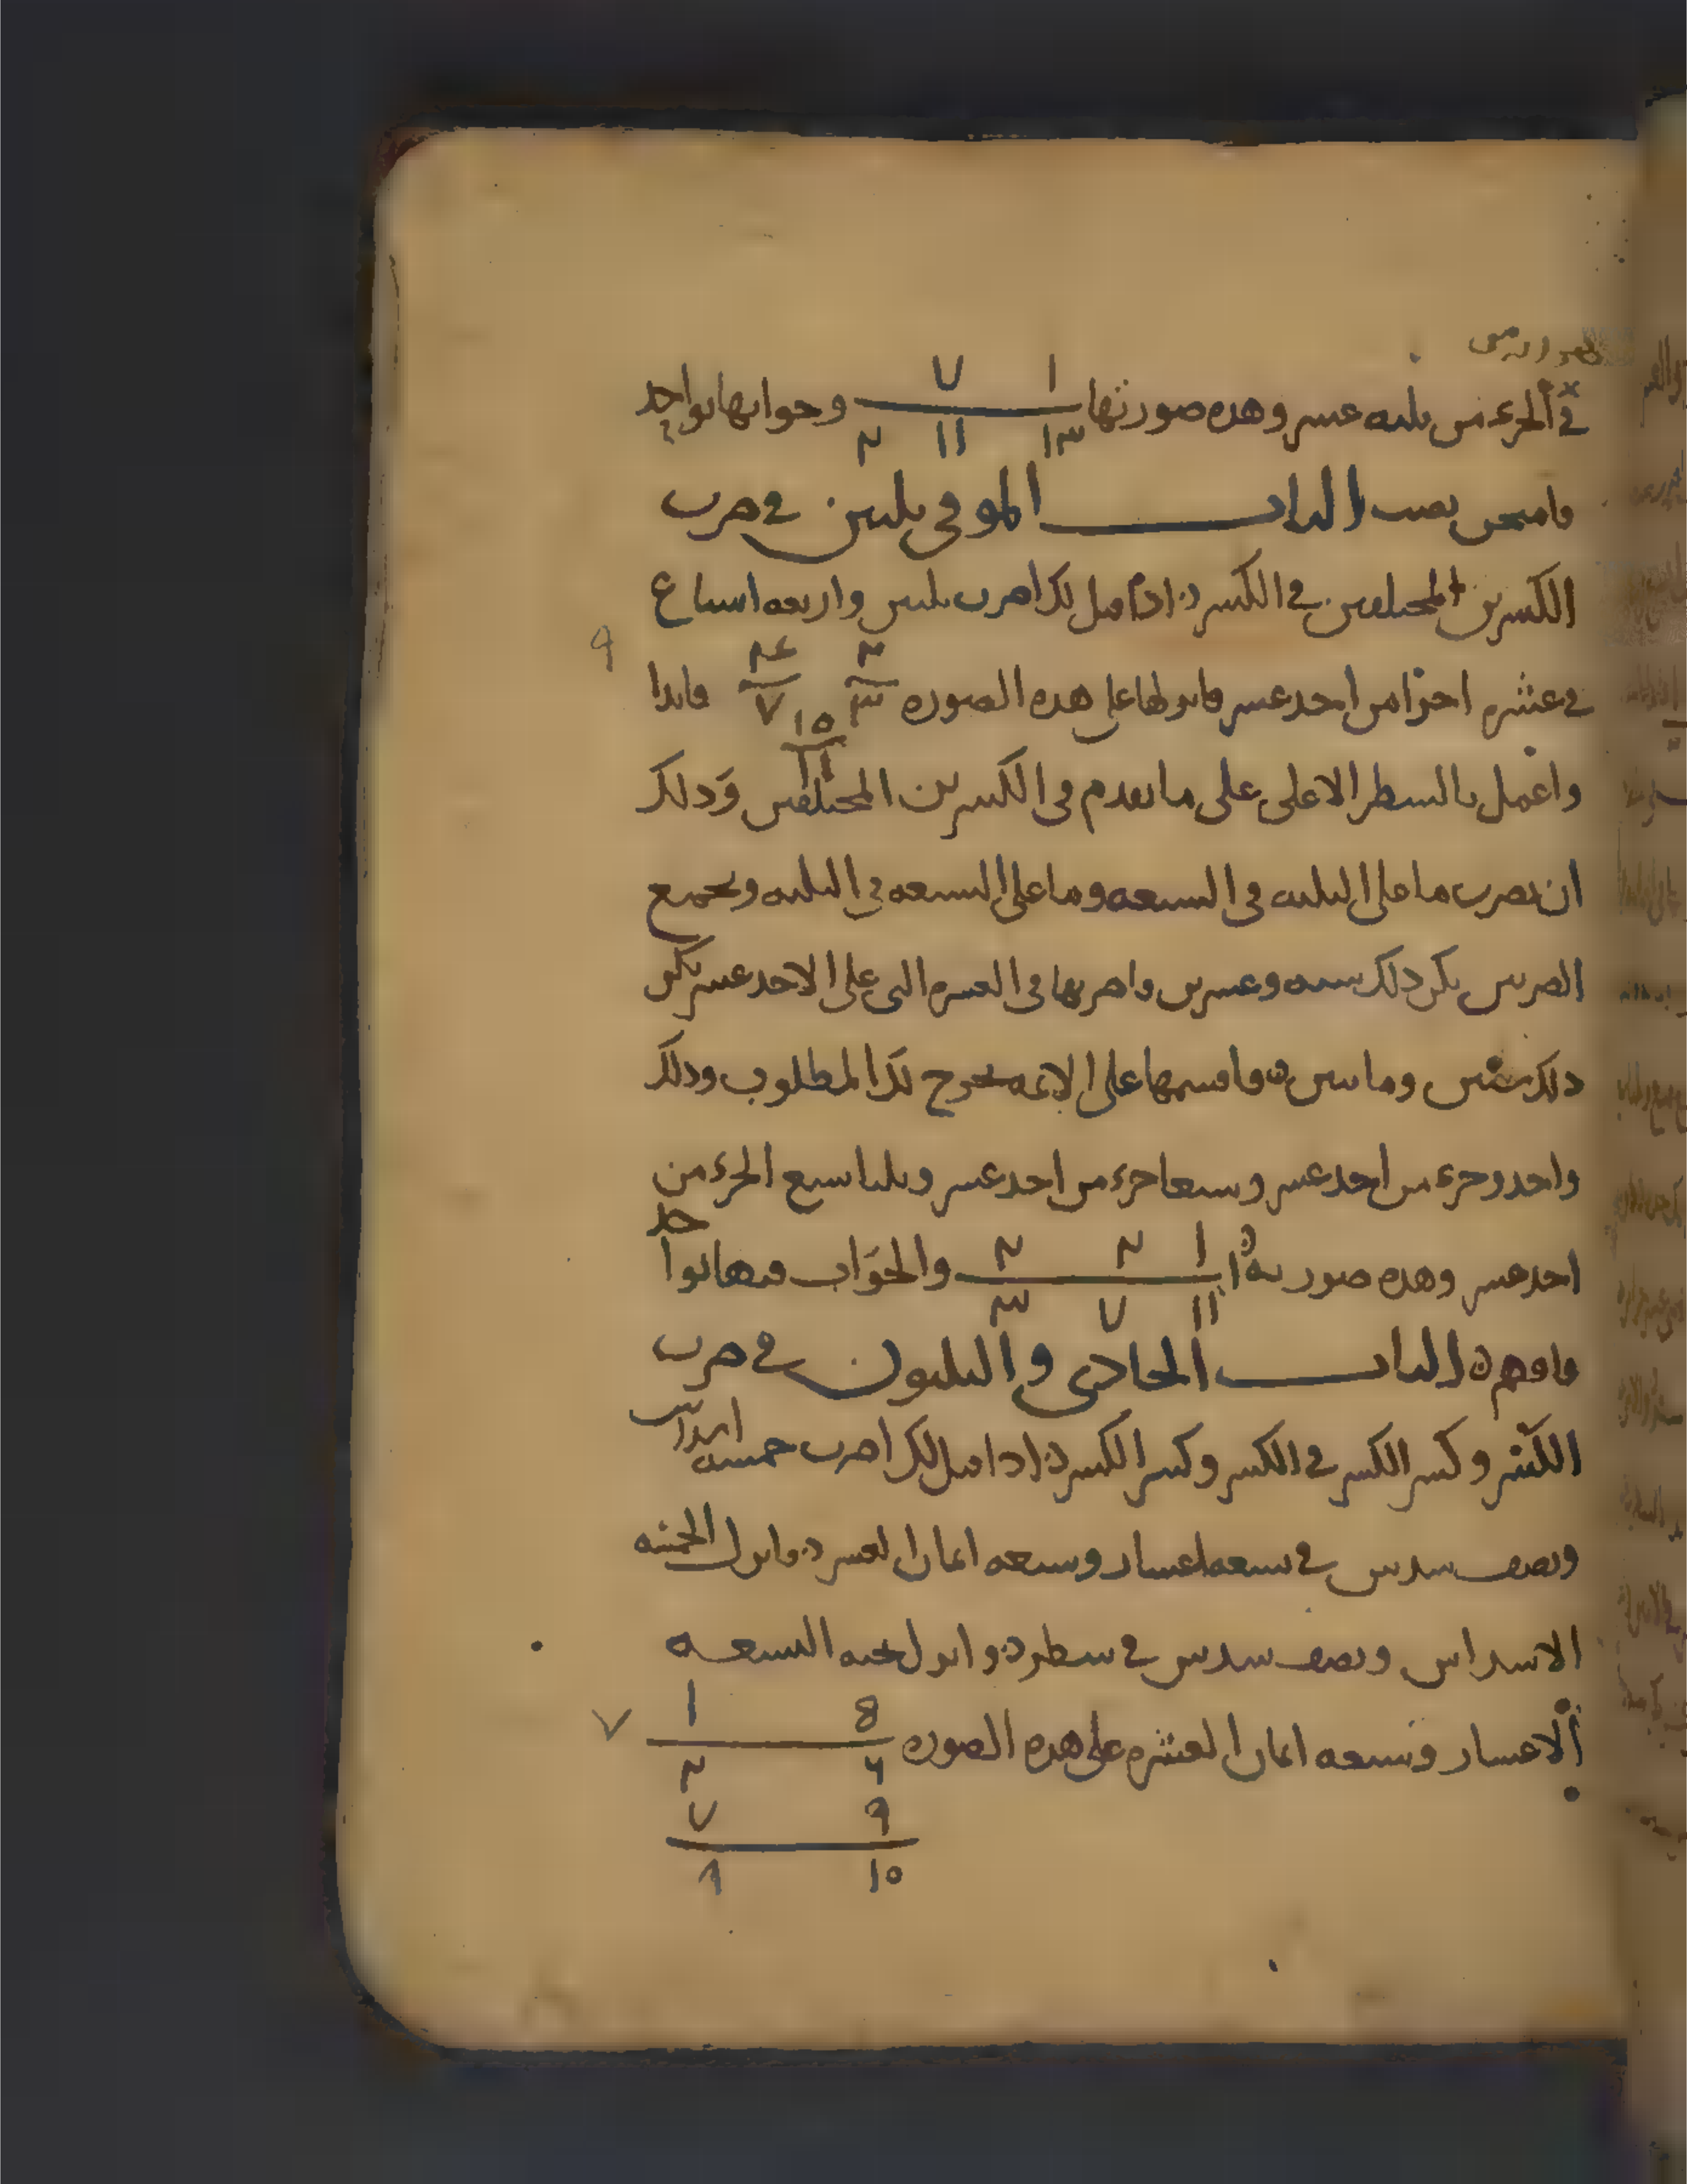 في الجزء من ثلثه عشر وهذه صورتها ١ ٧ / ١٣ ١١ ٢ وجوابها بواحد
فامتحن تصب الباب الموفي ثلثين في ضرب
الكسرين المختلفين في الكسر اذا قيل لك اضرب ثلثين واربعه اسباع
في عشره اجزا من احد عشر فانزلها على هذه الصوره ٢/٣ ٤/٧ فابدا
١٥/١١
واعمل بالسطر الاعلى على ما تقدم في الكسرين المختلفين وذلك
ان تضرب ما على الثلثه في السبعه وما على السبعه في الثلثه وتجمع
الضربين يكن ذلك سته وعشرين فاضربها في العشره التي على الاحد عشر يكن
ذلك ستين ومايتين فاقسمها على الايمه يخرج لك المطلوب وذلك
واحد وجزء من احد عشر وسبعا جزء من احد عشر وثلثا سبع الجزء من
احد عشر وهذه صورتها ١ ٢ ٢ / ١١ ٧ ٣ والجواب فيها بواحد
فافهم الباب الحادي والثلثون في ضرب
الكسر وكسر الكسر في الكسر وكسر الكسر اذا قيل لك اضرب خمسه اسداس
ونصف سدس في تسعه اعشار وسبعه اثمان العشر فانزل الخمسه
الاسداس ونصف سدس في سطر وانزل تحته التسعه
الاعشار وسبعه اثمان العشر على هذه الصوره 8 ١ / ٦ ٢ ٧
٩ ٧
١٥ ٨